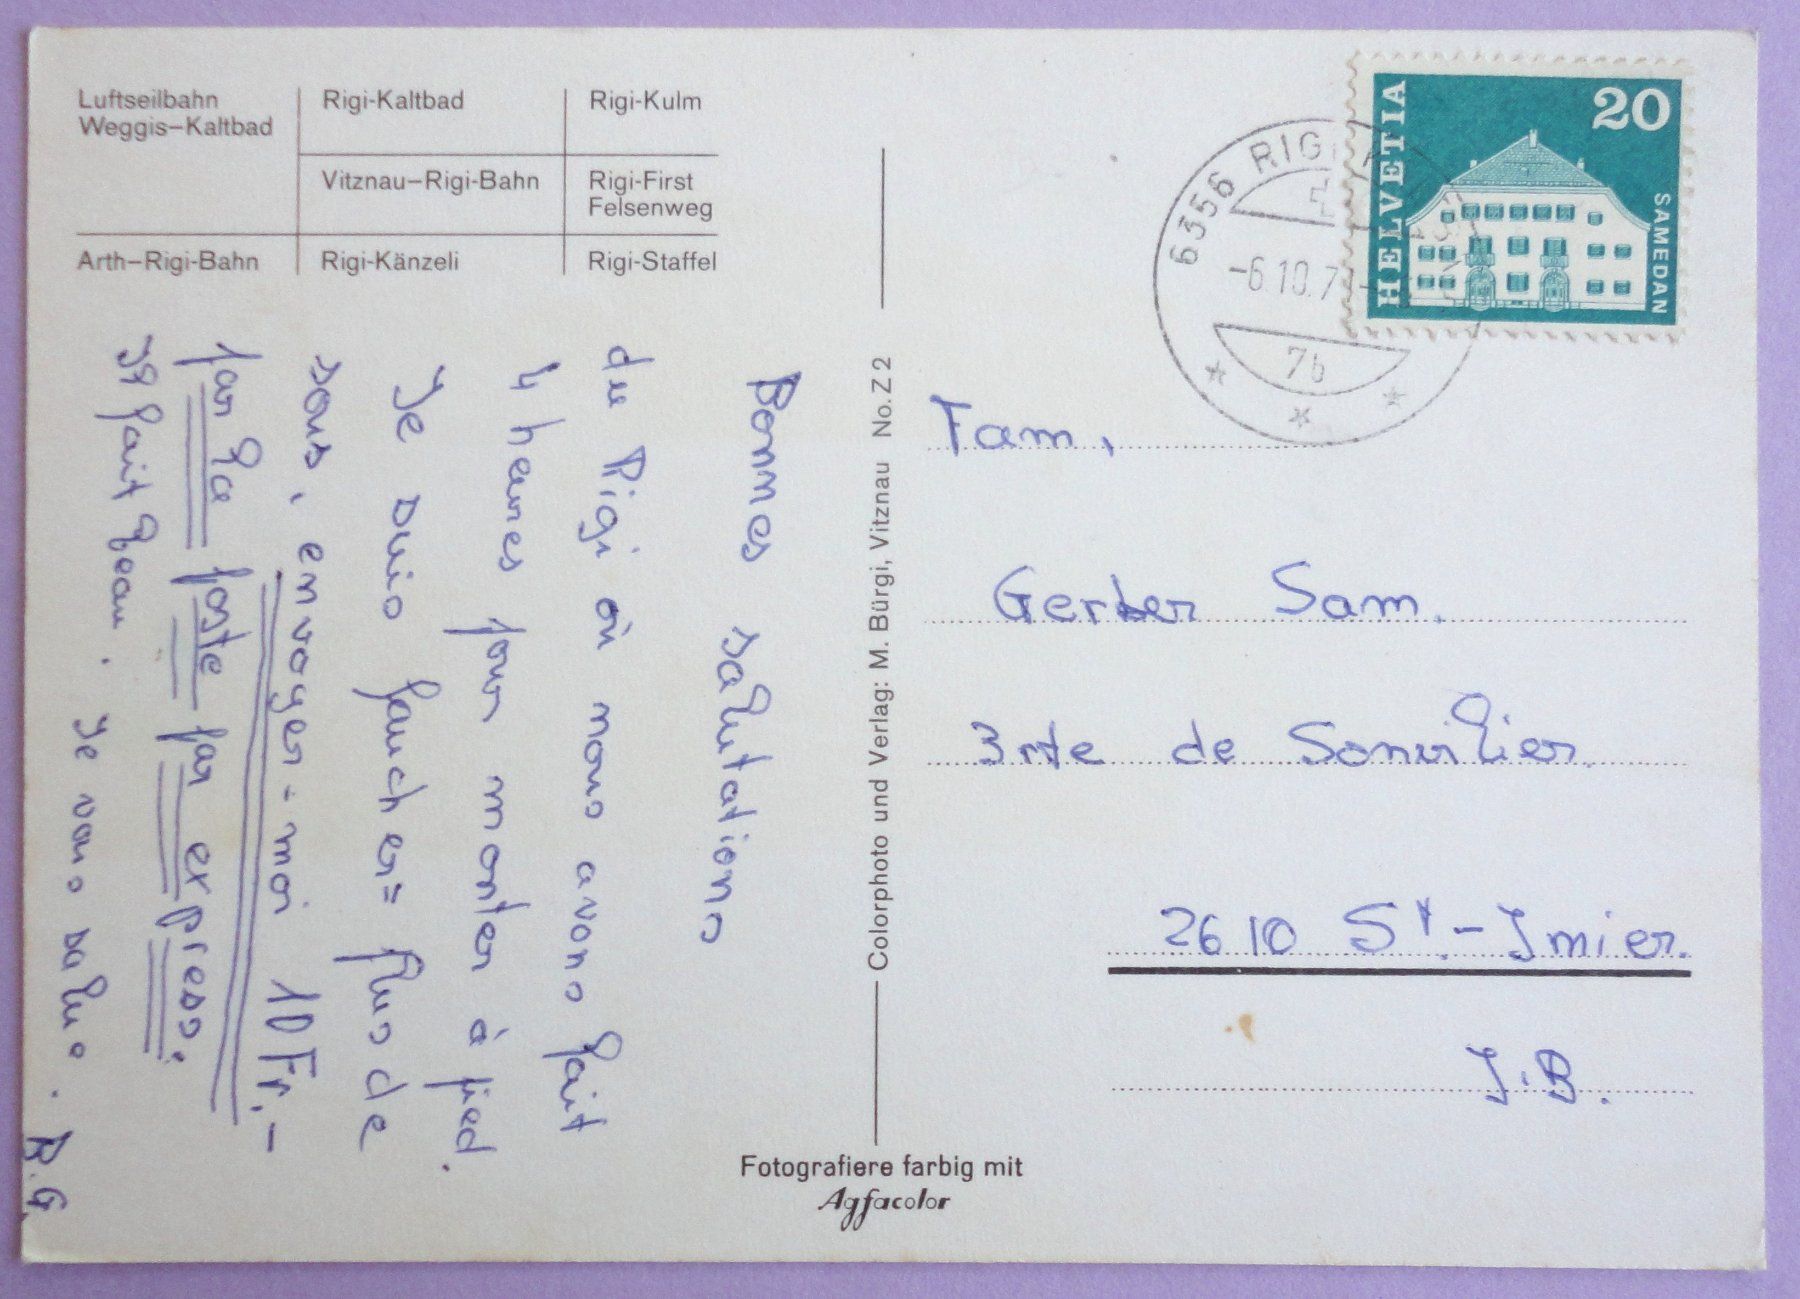 Luftseilbahn
Weggis–Kaltbad
Rigi-Kaltbad
Rigi-Kulm
Vitznau–Rigi-Bahn
Rigi-First
Felsenweg
Arth–Rigi-Bahn
Rigi-Känzeli
Rigi-Staffel
Bonnes salutations
du Rigi où nous avons fait
4 heures pour monter à pied.
Je suis faucher= plus de
sous, envoyer-moi 10 Fr.-
par la poste par express.
Il fait beau. Je vous salue. R.G
Colorphoto und Verlag: M. Bürgi, Vitznau No. Z 2
Fotografiere farbig mit
Agfacolor
HELVETIA
20
SAMEDAN
6356 RIGI
-6.10.7
7b
Fam,
Gerber Sam.
3 rte de Sonvilier.
2610 St-Imier.
J.B.